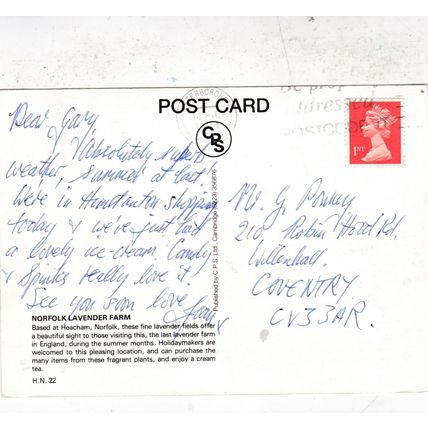 POST CARD
CPS
PETERBOROUGH
BE PROPERLY
ADDRESSED
POSTCODE IT
1ST
Dear Gary,
Absolutely superb
weather, summer at last!
We're in Hunstanton shopping
today & we've just had
a lovely ice-cream. Candy
& Spinks really love it.
See you soon love
Mr. G.
210 Robin Hood Rd.
Willenhall.
COVENTRY
CV3 3AR.
Published by C.P.S. Ltd., Cambridge (0223)
NORFOLK LAVENDER FARM
Based at Heacham, Norfolk, these fine lavender fields offer
a beautiful sight to those visiting this, the last lavender farm
in England, during the summer months. Holidaymakers are
welcomed to this pleasing location, and can purchase the
many items from these fragrant plants, and enjoy a cream
tea.
H.N. 22